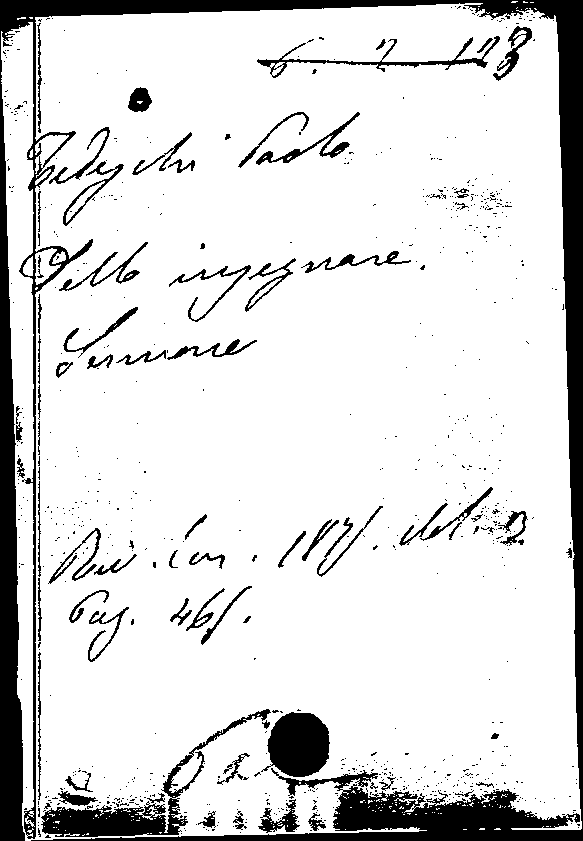 6. 2 123
Tedeschi Paolo
Dello insegnare.
Sermone
Riv. Eur. 1875. vol. 3
Pag. 465.